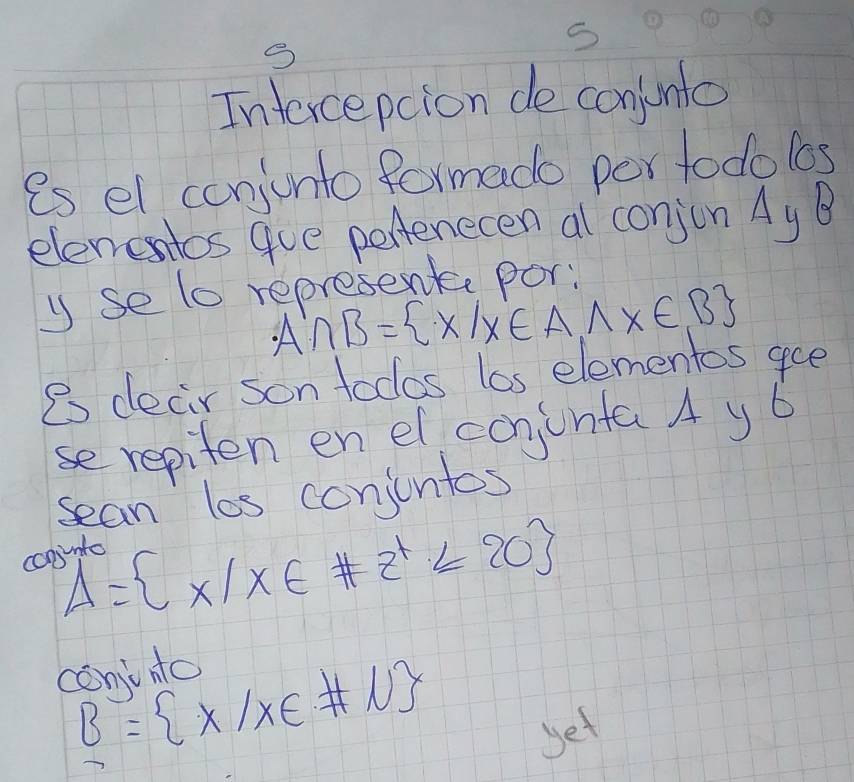 S S
Intercepcion de conjunto
Es el conjunto formado por todo los
elementos que pertenecen al conjun A y B
y se lo representa por:
A∩B={x/x∈A∧x∈B}
Es decir son todos los elementos que
se repiten en el conjunta A y b
sean los conjuntos
conjunto
A={x/x∈ # z⁺ ≤ 20}
conjunto
B={x/x∈ # N}
yet